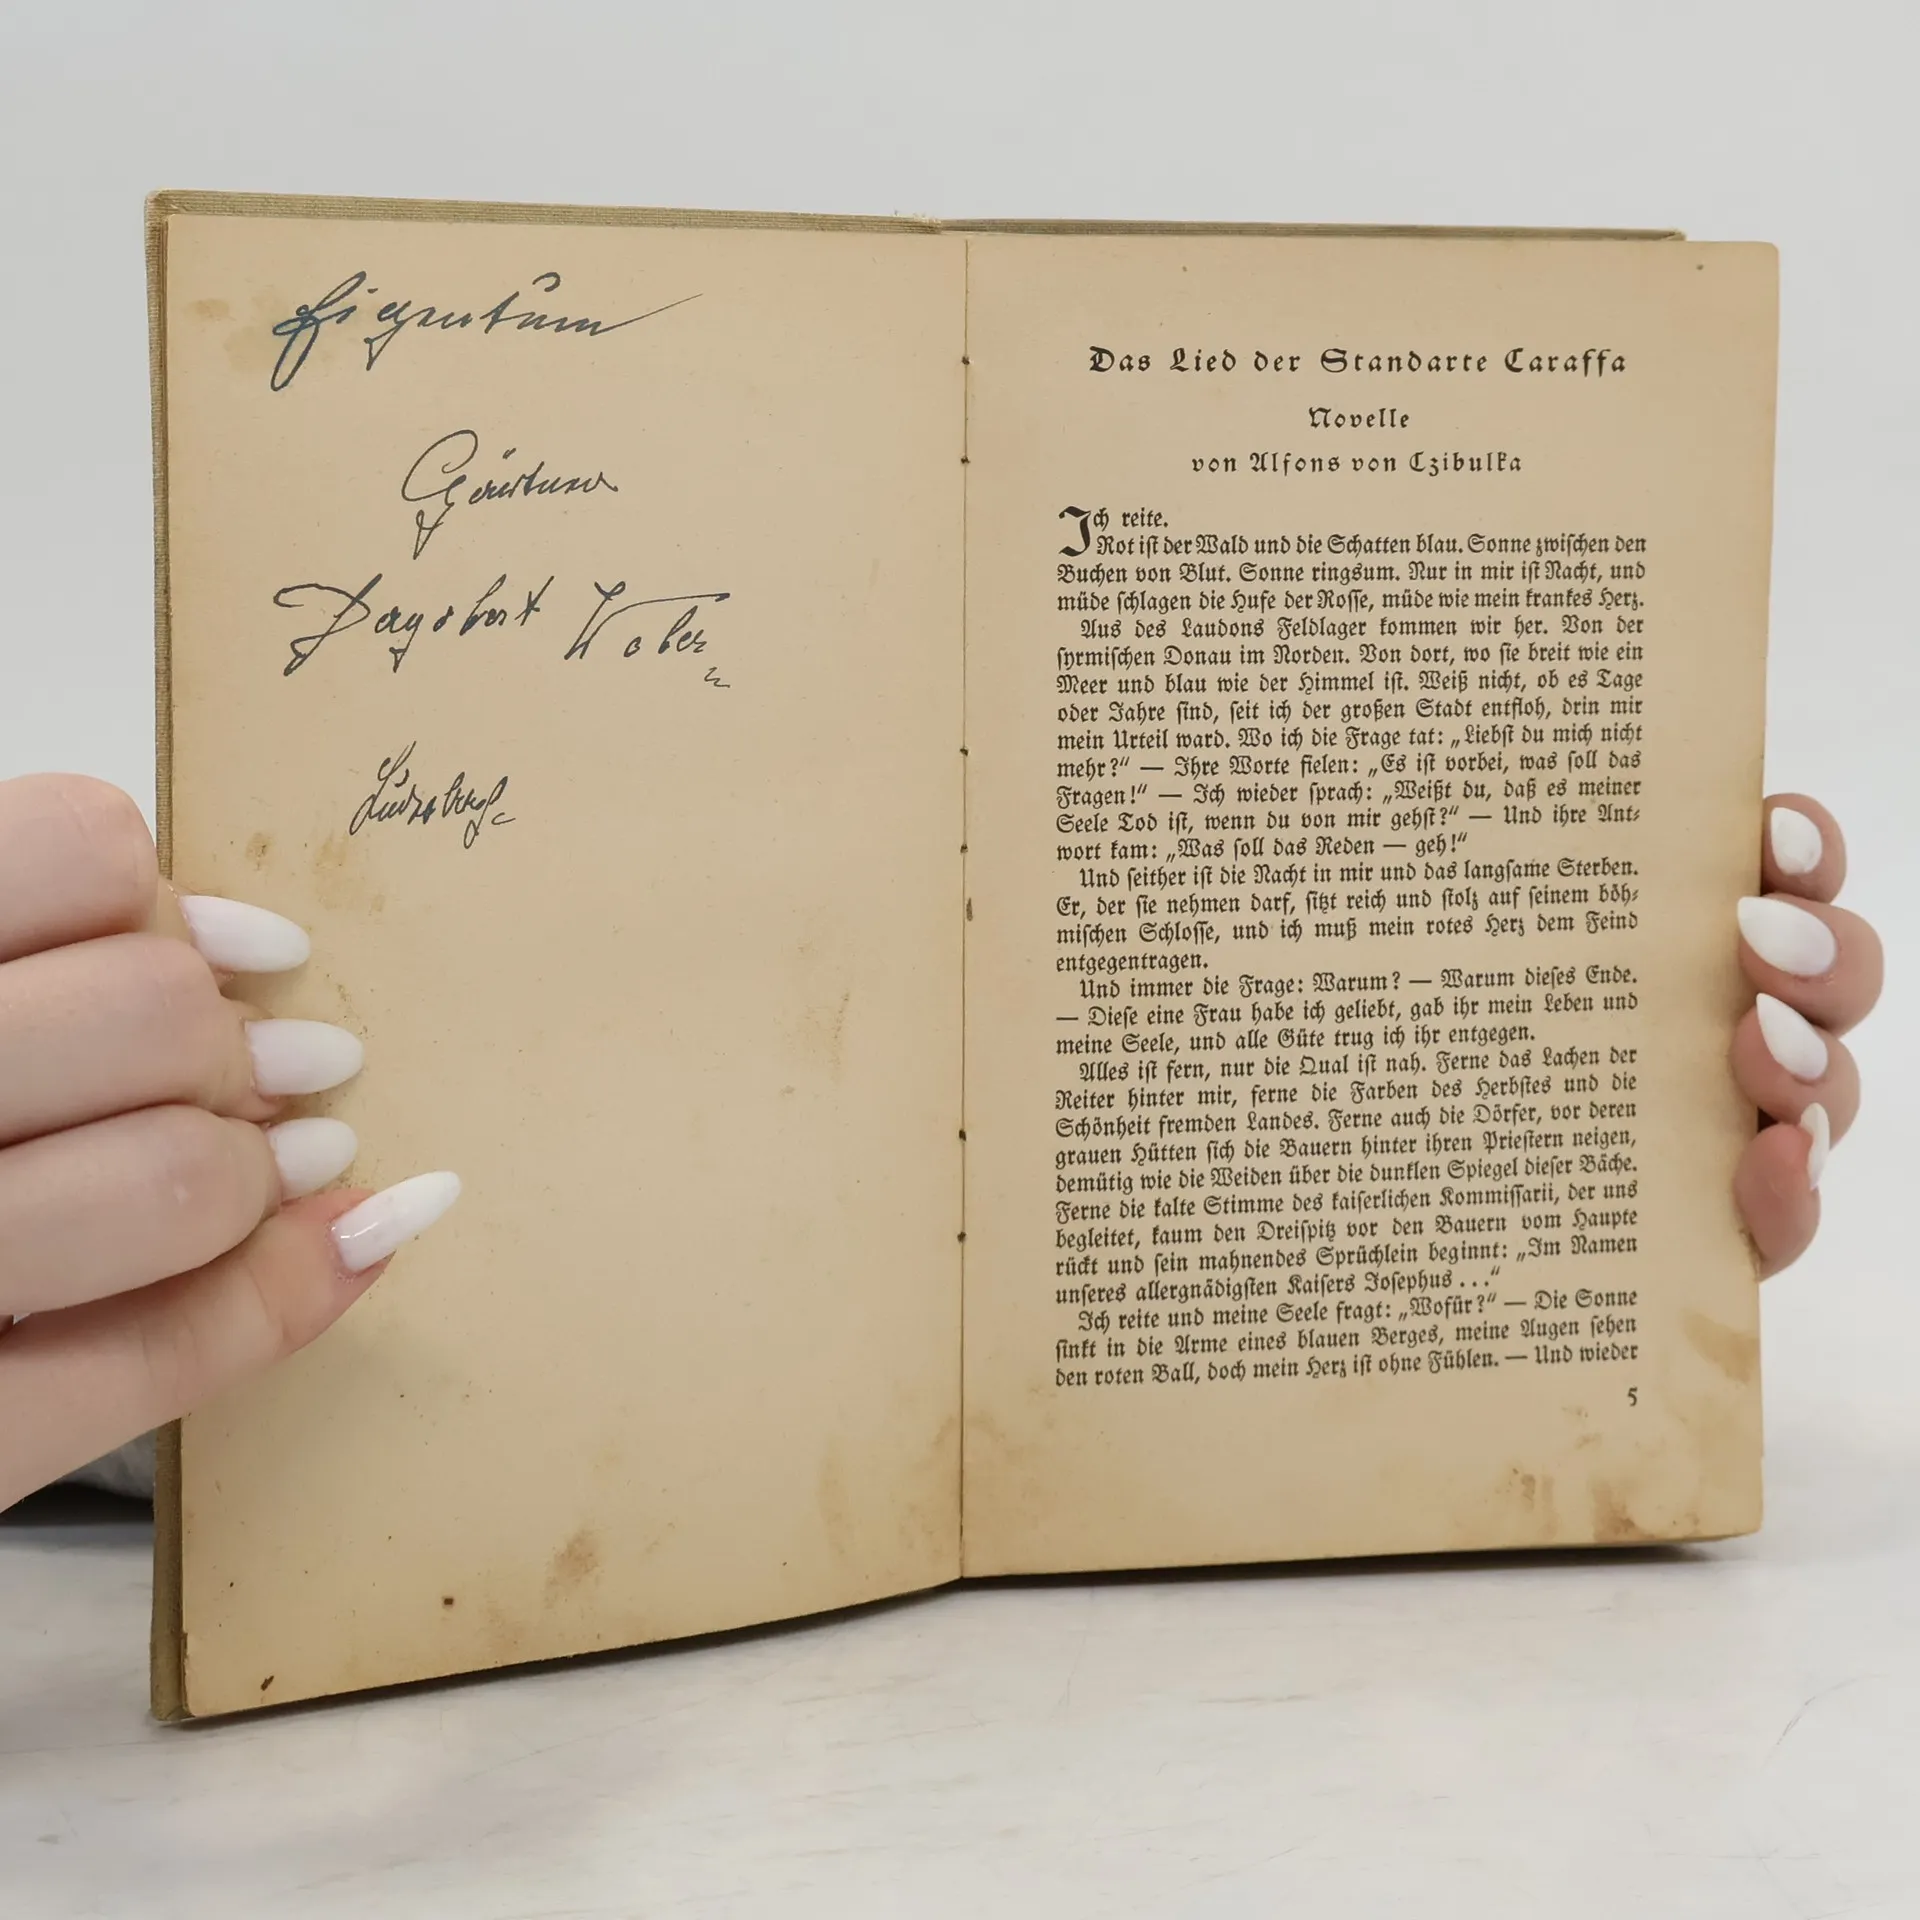 Eigentum
Gärtner
Dagobert Weber
Das Lied der Standarte Caraffa
Novelle
von Alfons von Czibulka
Ich reite.
Rot ist der Wald und die Schatten blau. Sonne zwischen den
Buchen von Blut. Sonne ringsum. Nur in mir ist Nacht, und
müde schlagen die Hufe der Rosse, müde wie mein krankes Herz.
Aus des Laudons Feldlager kommen wir her. Von der
syrmischen Donau im Norden. Von dort, wo sie breit wie ein
Meer und blau wie der Himmel ist. Weiß nicht, ob es Tage
oder Jahre sind, seit ich der großen Stadt entfloh, drin mir
mein Urteil ward. Wo ich die Frage tat: „Liebst du mich nicht
mehr?“ — Ihre Worte fielen: „Es ist vorbei, was soll das
Fragen!“ — Ich wieder sprach: „Weißt du, daß es meiner
Seele Tod ist, wenn du von mir gehst?“ — Und ihre Ant-
wort kam: „Was soll das Reden — geh!“
Und seither ist die Nacht in mir und das langsame Sterben.
Er, der sie nehmen darf, sitzt reich und stolz auf seinem böh-
mischen Schlosse, und ich muß mein rotes Herz dem Feind
entgegentragen.
Und immer die Frage: Warum? — Warum dieses Ende.
— Diese eine Frau habe ich geliebt, gab ihr mein Leben und
meine Seele, und alle Güte trug ich ihr entgegen.
Alles ist fern, nur die Qual ist nah. Ferne das Lachen der
Reiter hinter mir, ferne die Farben des Herbstes und die
Schönheit fremden Landes. Ferne auch die Dörfer, vor deren
grauen Hütten sich die Bauern hinter ihren Priestern neigen,
demütig wie die Weiden über die dunklen Spiegel dieser Bäche.
Ferne die kalte Stimme des kaiserlichen Kommissarii, der uns
begleitet, kaum den Dreispitz vor den Bauern vom Haupte
rückt und sein mahnendes Sprüchlein beginnt: „Im Namen
unseres allergnädigsten Kaisers Josephus . . .“
Ich reite und meine Seele fragt: „Wofür?“ — Die Sonne
sinkt in die Arme eines blauen Berges, meine Augen sehen
den roten Ball, doch mein Herz ist ohne Fühlen. — Und wieder
5